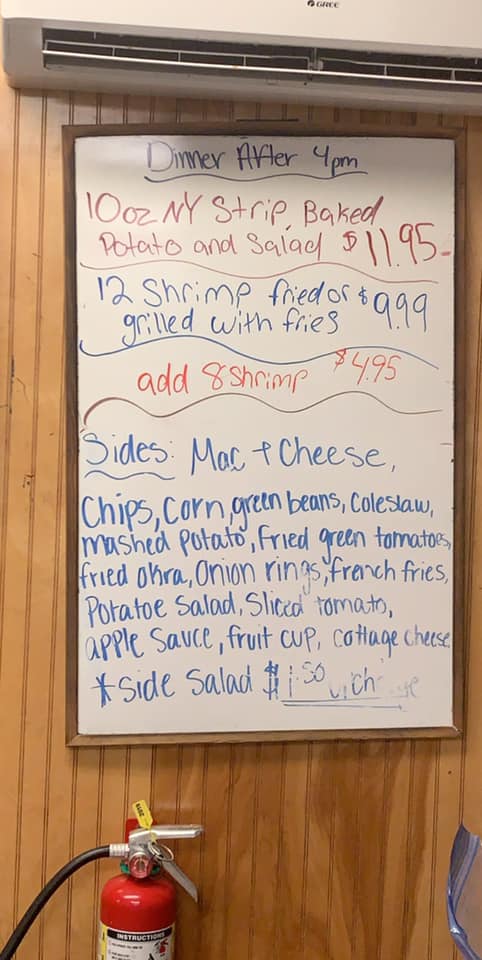 GREE
Dinner After 4pm
10oz NY Strip, Baked
Potato and Salad $11.95
12 Shrimp fried or $9.99
grilled with fries
add 8 shrimp $4.95
Sides: Mac + Cheese,
Chips, Corn, green beans, Coleslaw,
mashed Potato, Fried green tomatoes,
fried okra, Onion rings, french fries,
Potatoe Salad, Sliced tomato,
apple Sauce, fruit cup, cottage cheese
*Side Salad $1.50
INSTRUCTIONS